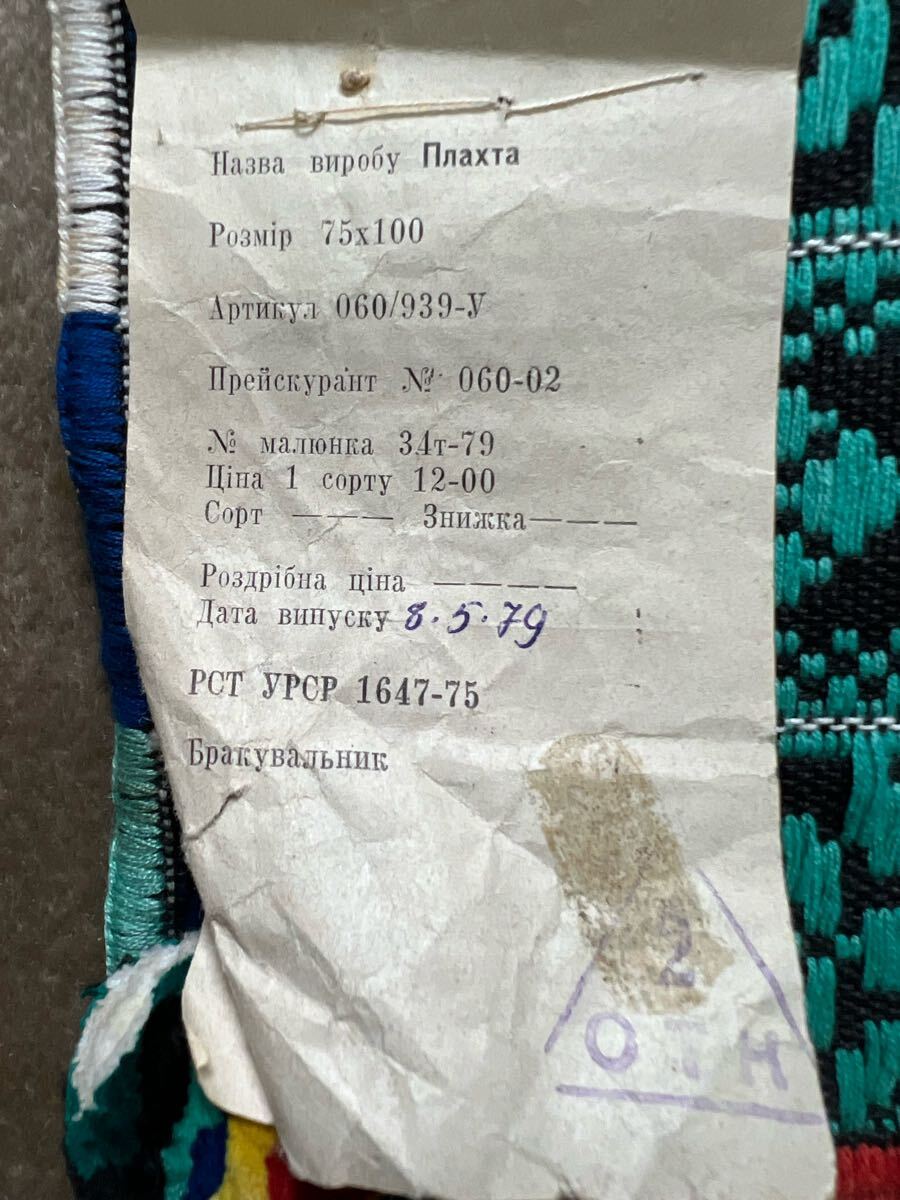 Назва виробу Плахта
Розмір 75х100
Артикул 060/939-У
Прейскурант № 060-02
№ малюнка 34т-79
Ціна 1 сорту 12-00
Сорт ——— Знижка———
Роздрібна ціна ————
Дата випуску 8.5.79
РСТ УРСР 1647-75
Бракувальник
2
О Т Н